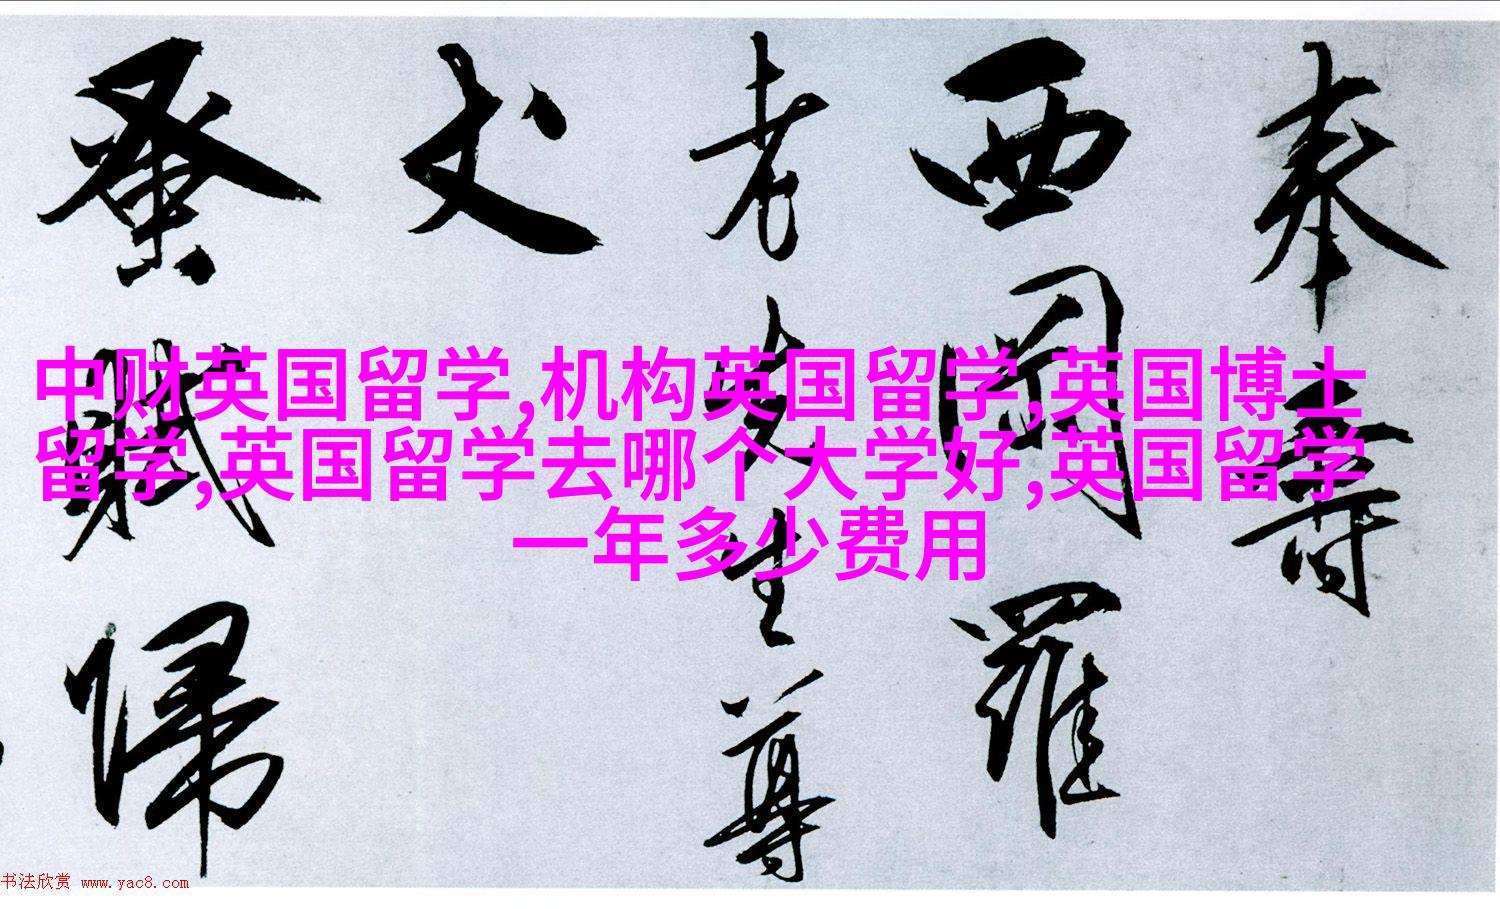 奉壽
西園羅
老先生尊
丈
蚤賦歸
中财英国留学,机构英国留学,英国博士
留学,英国留学去哪个大学好,英国留学
一年多少费用
书法欣赏 www.yac8.com